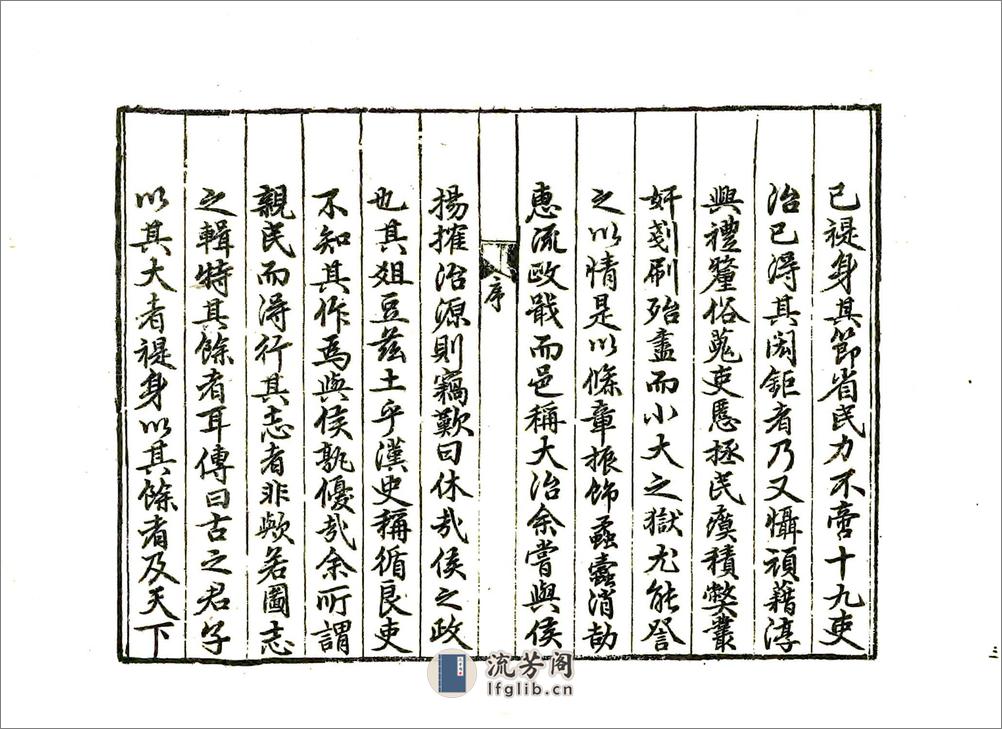 已禔身其節省民力不啻十九吏
治已得其閎鉅者乃又懾頑藉淳
興禮釐俗蒐吏慝拯民瘼積弊叢
奸剗刷殆盡而小大之獄尤能詧
之以情是以條章振飾蟊蠹消劫
惠流政戢而邑稱大治余嘗與侯
序
揚搉治源則竊歎曰休哉侯之政
也其俎豆茲土乎漢史稱循良吏
不知其作焉與侯孰優哉余所謂
親民而得行其志者非歟若圖志
之輯特其餘者耳傳曰古之君子
以其大者禔身以其餘者及天下
三
流芳阁
lfglib.cn